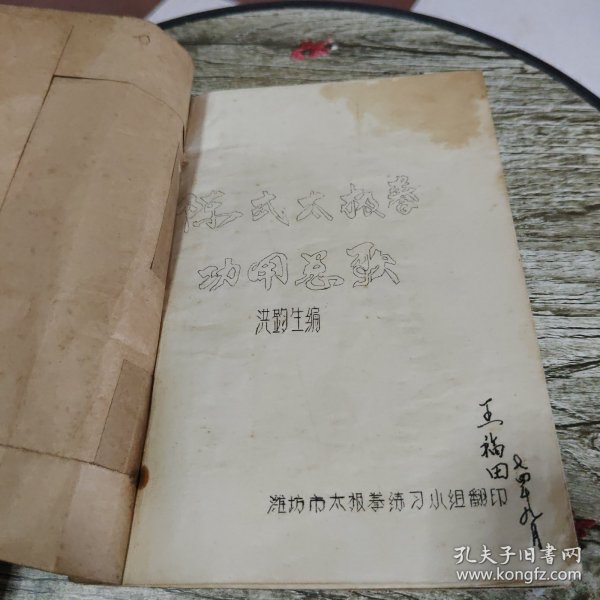 陈式太极拳
功用总歌
洪鈞生编
王福田
七四年九月
潍坊市太极拳练习小组翻印
孔夫子旧书网
www.kongfz.com